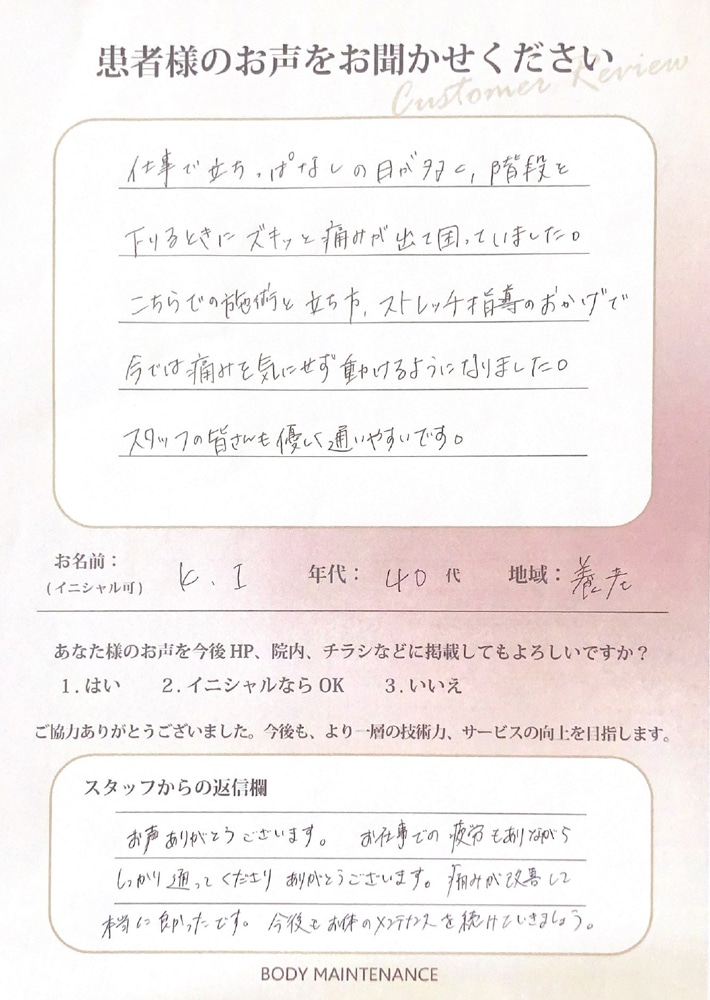 患者様のお声をお聞かせください
Customer Review
仕事で立ちっぱなしの日が多く、階段を
下りるときにズキッと痛みが出て困っていました。
こちらでの施術と立ち方、ストレッチ指導のおかげで
今では痛みを気にせず動けるようになりました。
スタッフの皆さんも優しく通いやすいです。
お名前：
(イニシャル可) K.I 年代：40代 地域：養老
あなた様のお声を今後HP、院内、チラシなどに掲載してもよろしいですか？
1.はい 2.イニシャルならOK 3.いいえ
ご協力ありがとうございました。今後も、より一層の技術力、サービスの向上を目指します。
スタッフからの返信欄
お声ありがとうございます。 お仕事での疲労もありながら
しっかり通ってくださりありがとうございます。痛みが改善して
本当に良かったです。今後もお体のメンテナンスを続けていきましょう。
BODY MAINTENANCE